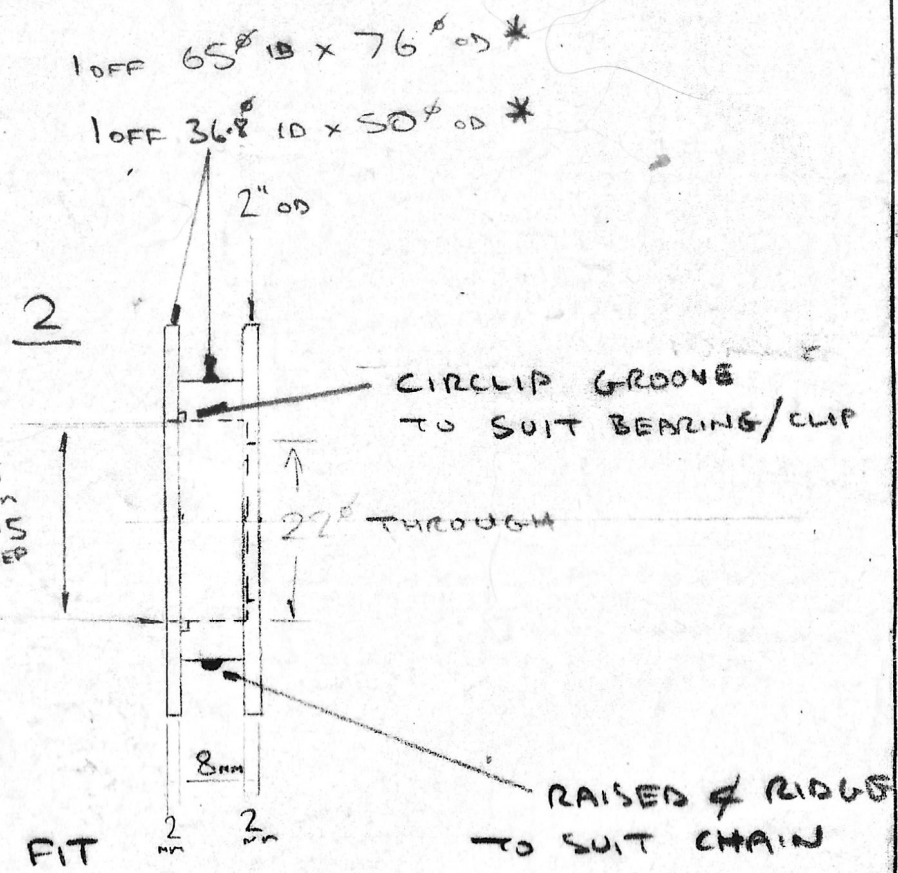 1 OFF 65ø ID x 76ø OD *
1 OFF 36.8ø ID x 50ø OD *
2" OD
2
CIRCLIP GROOVE
TO SUIT BEARING/CLIP
5
EP
22ø THROUGH
8mm
2 mm
2 mm
RAISED & RIDGE
TO SUIT CHAIN
FIT